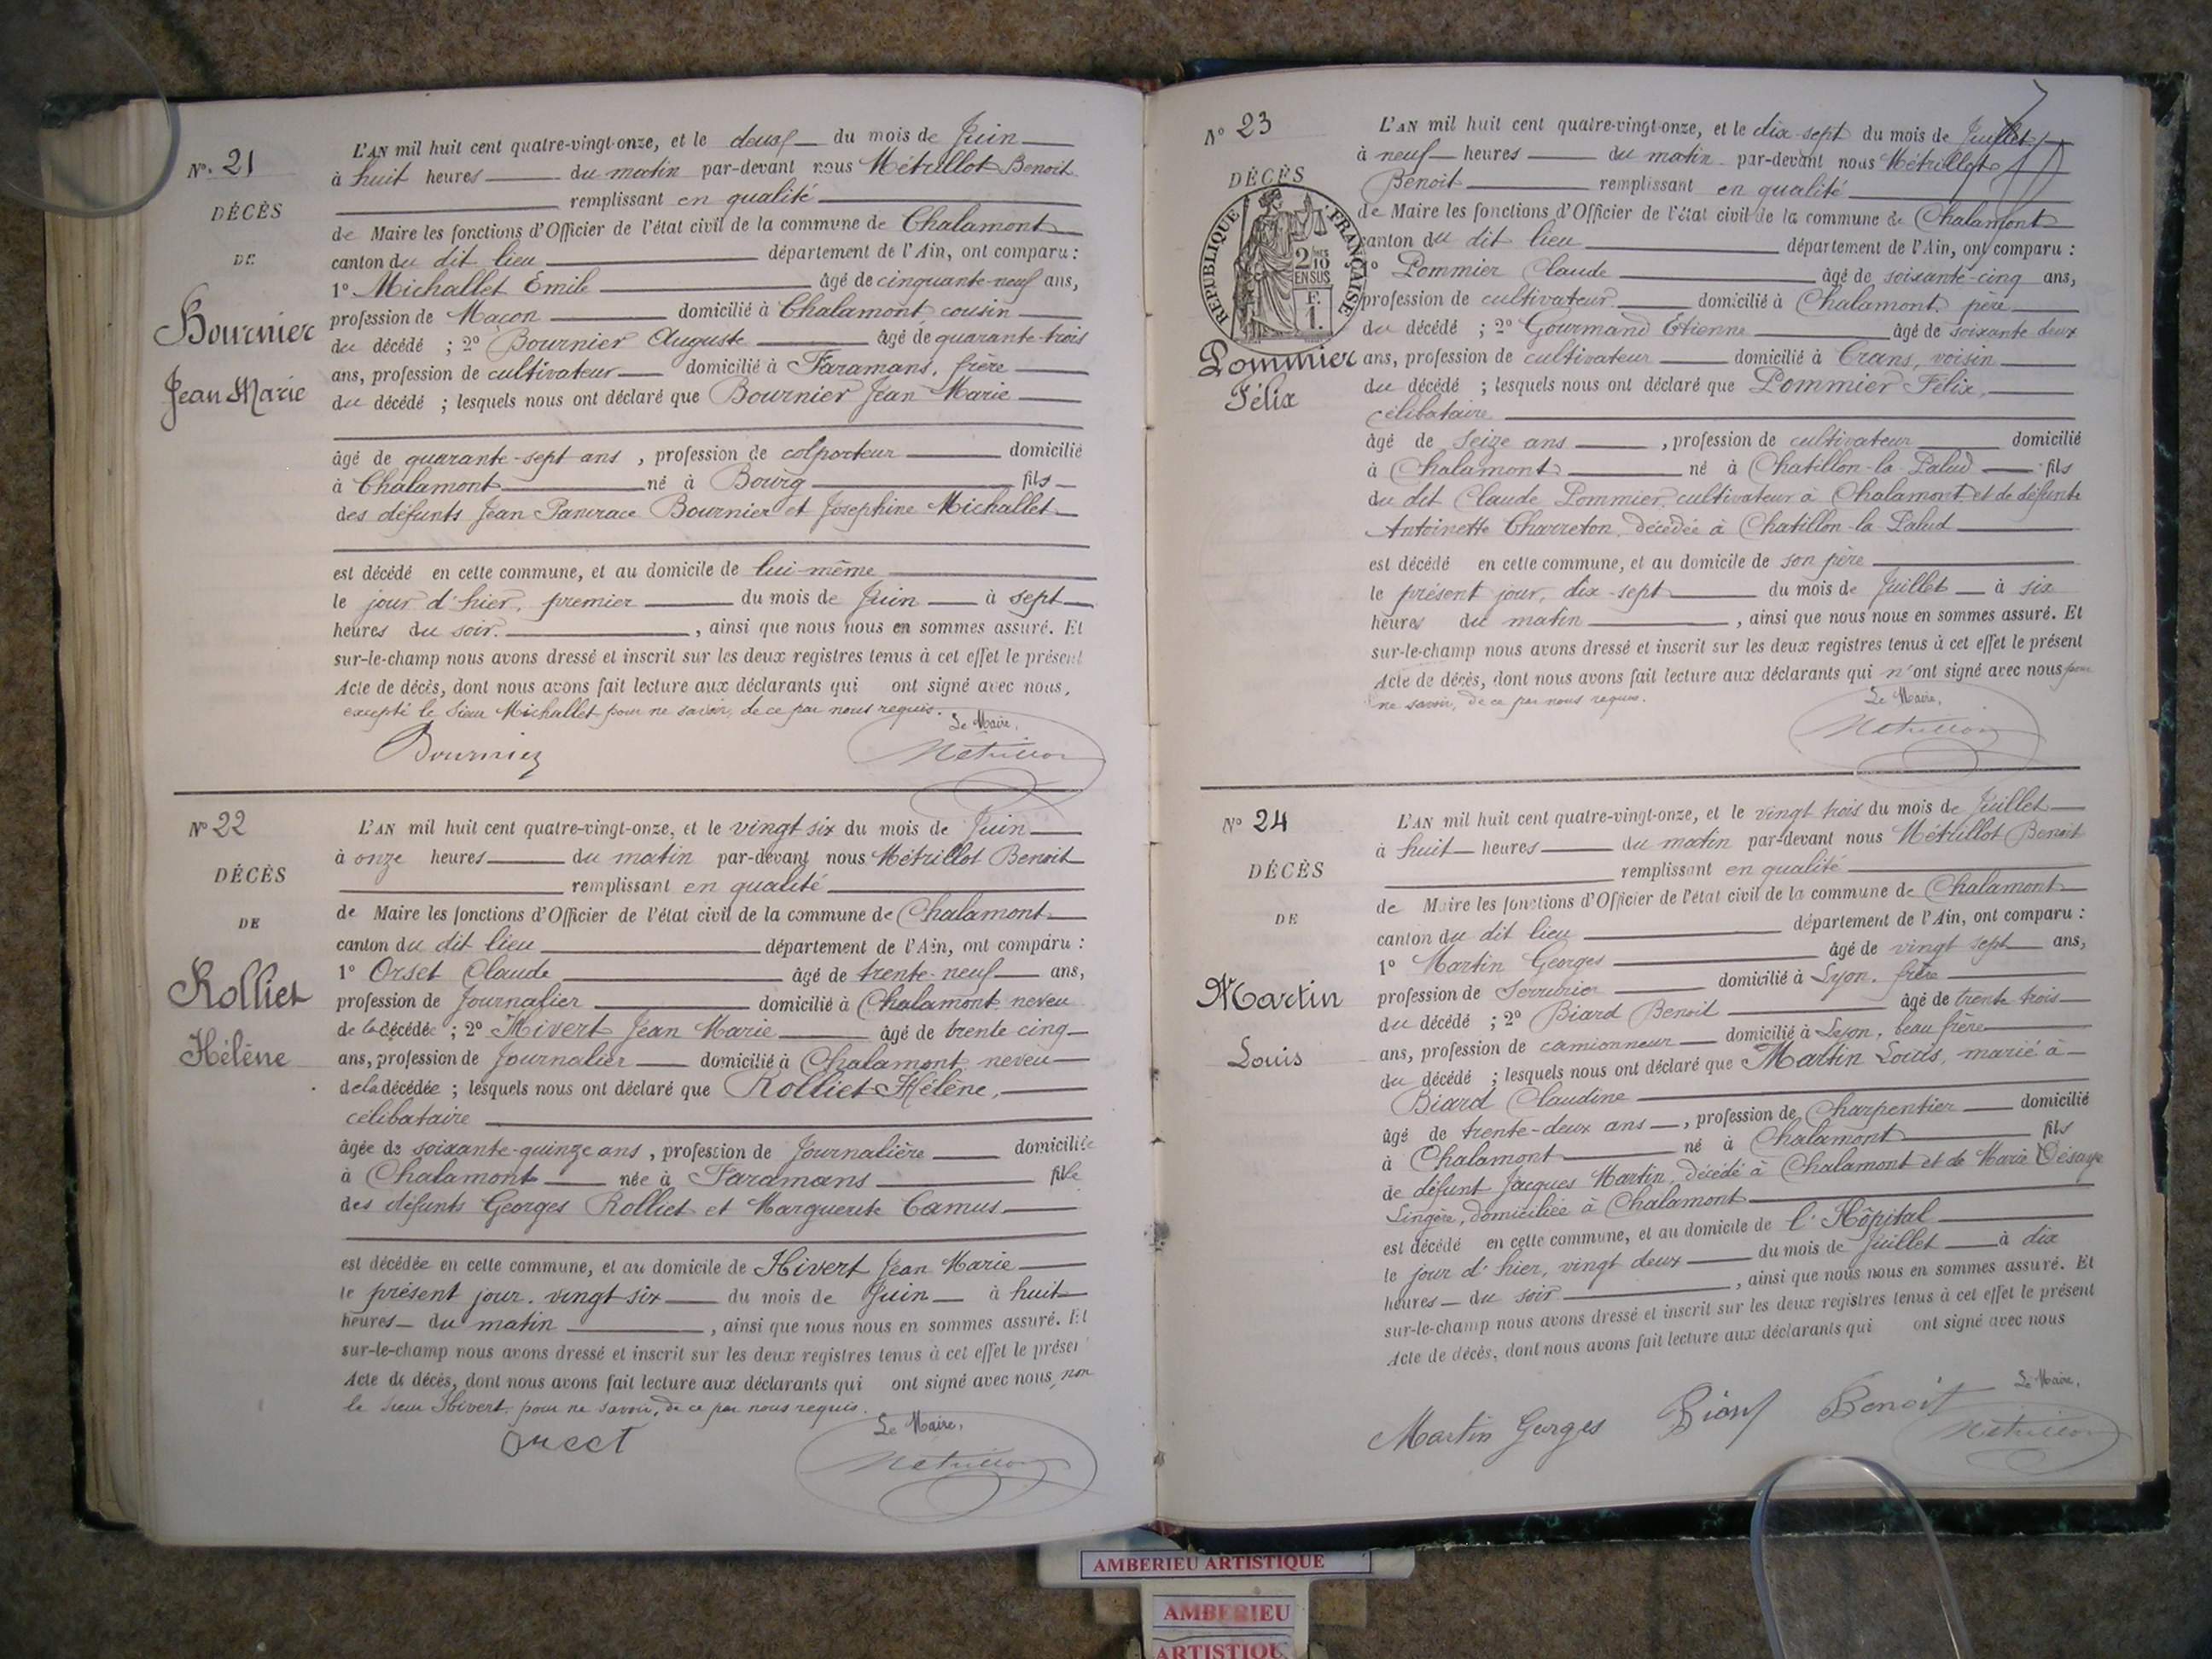 Nº. 21
DÉCÈS
DE
Bournier
Jean Marie
L'AN mil huit cent quatre-vingt-onze, et le deux du mois de Juin
à huit heures du matin par-devant nous Métrillot Benoit
remplissant en qualité
de Maire les fonctions d'Officier de l'état civil de la commune de Chalamont
canton du dit lieu département de l'Ain, ont comparu :
1º Michallet Emile âgé de cinquante-neuf ans,
profession de Maçon domicilié à Chalamont cousin
du décédé ; 2º Bournier Auguste âgé de quarante-trois
ans, profession de cultivateur domicilié à Faramans, frère
du décédé ; lesquels nous ont déclaré que Bournier Jean Marie
âgé de quarante-sept ans , profession de colporteur domicilié
à Chalamont né à Bourg fils
des défunts Jean Pancrace Bournier et Josephine Michallet
est décédé en cette commune, et au domicile de lui-même
le jour d'hier, premier du mois de Juin à sept
heures du soir. , ainsi que nous nous en sommes assuré. Et
sur-le-champ nous avons dressé et inscrit sur les deux registres tenus à cet effet le présent
Acte de décès, dont nous avons fait lecture aux déclarants qui ont signé avec nous,
excepté le sieur Michallet pour ne savoir, de ce par nous requis.
Le Maire,
Bournier Métrillot
Nº 22
DÉCÈS
DE
Rolliet
Hélène
L'AN mil huit cent quatre-vingt-onze, et le vingt six du mois de Juin
à onze heures du matin par-devant nous Métrillot Benoit
remplissant en qualité
de Maire les fonctions d'Officier de l'état civil de la commune de Chalamont
canton du dit lieu département de l'Ain, ont comparu :
1º Orset Claude âgé de trente-neuf ans,
profession de Journalier domicilié à Chalamont neveu
de la décédée ; 2º Hivert Jean Marie âgé de trente cinq
ans, profession de Journalier domicilié à Chalamont neveu
de la décédée ; lesquels nous ont déclaré que Rolliet Hélène,
célibataire
âgée de soixante-quinze ans , profession de Journalière domiciliée
à Chalamont née à Faramans fille
des défunts Georges Rolliet et Marguerite Camus
est décédée en cette commune, et au domicile de Hivert Jean Marie
le présent jour. vingt six du mois de Juin à huit
heures du matin , ainsi que nous nous en sommes assuré. Et
sur-le-champ nous avons dressé et inscrit sur les deux registres tenus à cet effet le présent
Acte de décès, dont nous avons fait lecture aux déclarants qui ont signé avec nous, non
le sieur Hivert, pour ne savoir, de ce par nous requis.
Le Maire,
Orset Métrillot
Nº 23
DÉCÈS
REPUBLIQUE FRANÇAISE
2/10
EN SUS
F.
1.
Pommier
Félix
L'AN mil huit cent quatre-vingt-onze, et le dix-sept du mois de Juillet
à neuf heures du matin par-devant nous Métrillot
Benoit remplissant en qualité
de Maire les fonctions d'Officier de l'état civil de la commune de Chalamont
canton du dit lieu département de l'Ain, ont comparu :
1º Pommier Claude âgé de soixante-cinq ans,
profession de cultivateur domicilié à Chalamont. père
du décédé ; 2º Gourmand Etienne âgé de soixante deux
ans, profession de cultivateur domicilié à Crans, voisin
du décédé ; lesquels nous ont déclaré que Pommier Félix,
célibataire
âgé de seize ans , profession de cultivateur domicilié
à Chalamont né à Chatillon-la-Palud fils
du dit Claude Pommier cultivateur à Chalamont et de défunte
Antoinette Charreton, décédée à Chatillon-la-Palud
est décédé en cette commune, et au domicile de son père
le présent jour, dix-sept du mois de Juillet à six
heures du matin , ainsi que nous nous en sommes assuré. Et
sur-le-champ nous avons dressé et inscrit sur les deux registres tenus à cet effet le présent
Acte de décès, dont nous avons fait lecture aux déclarants qui n'ont signé avec nous pour
ne savoir, de ce par nous requis.
Le Maire,
Métrillot
Nº 24
DÉCÈS
DE
Martin
Louis
L'AN mil huit cent quatre-vingt-onze, et le vingt trois du mois de Juillet
à huit heures du matin par-devant nous Métrillot Benoit
remplissant en qualité
de Maire les fonctions d'Officier de l'état civil de la commune de Chalamont
canton du dit lieu département de l'Ain, ont comparu :
1º Martin Georges âgé de vingt sept ans,
profession de Serrurier domicilié à Lyon. frère
du décédé ; 2º Biard Benoit âgé de trente trois
ans, profession de camionneur domicilié à Lyon, beau frère
du décédé ; lesquels nous ont déclaré que Martin Louis, marié à
Biard Claudine
âgé de trente-deux ans , profession de Charpentier domicilié
à Chalamont né à Chalamont fils
de défunt Jacques Martin, décédé à Chalamont et de Marie Désaye
Lingère, domiciliée à Chalamont
est décédé en cette commune, et au domicile de l'Hôpital
le jour d'hier, vingt deux du mois de Juillet à dix
heures du soir , ainsi que nous nous en sommes assuré. Et
sur-le-champ nous avons dressé et inscrit sur les deux registres tenus à cet effet le présent
Acte de décès, dont nous avons fait lecture aux déclarants qui ont signé avec nous
Le Maire,
Martin Georges Biard Benoit Métrillot
AMBERIEU ARTISTIQUE
AMBERIEU
ARTISTIQUE